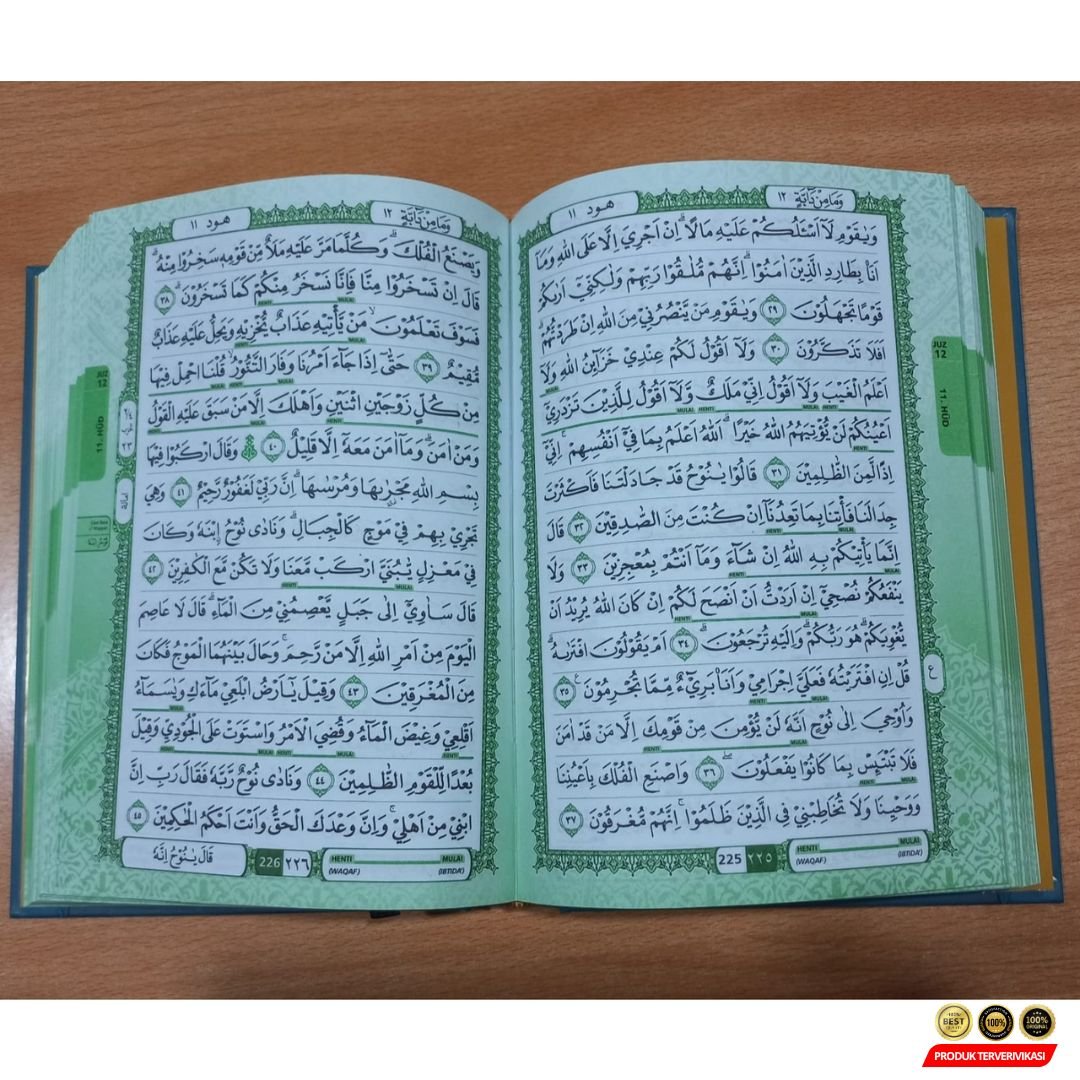 وَمَا مِنْ دَآبَّةٍ ١٢
هود ١١
وَيٰقَوْمِ لَآ اَسْـَٔلُكُمْ عَلَيْهِ مَالًاۗ اِنْ اَجْرِيَ اِلَّا عَلَى اللّٰهِ وَمَآ
اَنَا۠ بِطَارِدِ الَّذِيْنَ اٰمَنُوْاۗ اِنَّهُمْ مُّلٰقُوْا رَبِّهِمْ وَلٰكِنِّيْٓ اَرٰىكُمْ
قَوْمًا تَجْهَلُوْنَ ٢٩ وَيٰقَوْمِ مَنْ يَّنْصُرُنِيْ مِنَ اللّٰهِ اِنْ طَرَدْتُّهُمْۗ
اَفَلَا تَذَكَّرُوْنَ ٣٠ وَلَآ اَقُوْلُ لَكُمْ عِنْدِيْ خَزَاۤىِٕنُ اللّٰهِ وَلَآ
اَعْلَمُ الْغَيْبَ وَلَآ اَقُوْلُ اِنِّيْ مَلَكٌ وَّلَآ اَقُوْلُ لِلَّذِيْنَ تَزْدَرِيْٓ
اَعْيُنُكُمْ لَنْ يُّؤْتِيَهُمُ اللّٰهُ خَيْرًاۗ اَللّٰهُ اَعْلَمُ بِمَا فِيْٓ اَنْفُسِهِمْۚ اِنِّيْٓ
اِذًا لَّمِنَ الظّٰلِمِيْنَ ٣١ قَالُوْا يٰنُوْحُ قَدْ جَادَلْتَنَا فَاَكْثَرْتَ
جِدَالَنَا فَأْتِنَا بِمَا تَعِدُنَآ اِنْ كُنْتَ مِنَ الصّٰدِقِيْنَ ٣٢ قَالَ
اِنَّمَا يَأْتِيْكُمْ بِهِ اللّٰهُ اِنْ شَاۤءَ وَمَآ اَنْتُمْ بِمُعْجِزِيْنَ ٣٣ وَلَا
يَنْفَعُكُمْ نُصْحِيْٓ اِنْ اَرَدْتُّ اَنْ اَنْصَحَ لَكُمْ اِنْ كَانَ اللّٰهُ يُرِيْدُ اَنْ
يُّغْوِيَكُمْۗ هُوَ رَبُّكُمْۗ وَاِلَيْهِ تُرْجَعُوْنَۗ ٣٤ اَمْ يَقُوْلُوْنَ افْتَرٰىهُۗ
قُلْ اِنِ افْتَرَيْتُهٗ فَعَلَيَّ اِجْرَامِيْ وَاَنَا۠ بَرِيْۤءٌ مِّمَّا تُجْرِمُوْنَ ࣖ ٣٥
وَاُوْحِيَ اِلٰى نُوْحٍ اَنَّهٗ لَنْ يُّؤْمِنَ مِنْ قَوْمِكَ اِلَّا مَنْ قَدْ اٰمَنَ
فَلَا تَبْتَىِٕسْ بِمَا كَانُوْا يَفْعَلُوْنَۖ ٣٦ وَاصْنَعِ الْفُلْكَ بِاَعْيُنِنَا
وَوَحْيِنَا وَلَا تُخَاطِبْنِيْ فِى الَّذِيْنَ ظَلَمُوْاۚ اِنَّهُمْ مُّغْرَقُوْنَ ٣٧
225 ٢٢٥
HENTI MULAI
(WAQAF) (IBTIDA')
JUZ
12
11. HŪD
ع
وَمَا مِنْ دَآبَّةٍ ١٢
هود ١١
وَيَصْنَعُ الْفُلْكَۗ وَكُلَّمَا مَرَّ عَلَيْهِ مَلَاٌ مِّنْ قَوْمِهٖ سَخِرُوْا مِنْهُۗ
قَالَ اِنْ تَسْخَرُوْا مِنَّا فَاِنَّا نَسْخَرُ مِنْكُمْ كَمَا تَسْخَرُوْنَۗ ٣٨
فَسَوْفَ تَعْلَمُوْنَۙ مَنْ يَّأْتِيْهِ عَذَابٌ يُّخْزِيْهِ وَيَحِلُّ عَلَيْهِ عَذَابٌ
مُّقِيْمٌ ٣٩ حَتّٰىٓ اِذَا جَاۤءَ اَمْرُنَا وَفَارَ التَّنُّوْرُۙ قُلْنَا احْمِلْ فِيْهَا
مِنْ كُلٍّ زَوْجَيْنِ اثْنَيْنِ وَاَهْلَكَ اِلَّا مَنْ سَبَقَ عَلَيْهِ الْقَوْلُ
وَمَنْ اٰمَنَۗ وَمَآ اٰمَنَ مَعَهٗٓ اِلَّا قَلِيْلٌ ٤٠ ۞ وَقَالَ ارْكَبُوْا فِيْهَا
بِسْمِ اللّٰهِ مَجْرٰ۪ىهَا وَمُرْسٰىهَاۗ اِنَّ رَبِّيْ لَغَفُوْرٌ رَّحِيْمٌ ٤١ وَهِيَ
تَجْرِيْ بِهِمْ فِيْ مَوْجٍ كَالْجِبَالِۗ وَنَادٰى نُوْحُ ِۨابْنَهٗ وَكَانَ
فِيْ مَعْزِلٍ يّٰبُنَيَّ ارْكَبْ مَّعَنَا وَلَا تَكُنْ مَّعَ الْكٰفِرِيْنَ ٤٢
قَالَ سَاٰوِيْٓ اِلٰى جَبَلٍ يَّعْصِمُنِيْ مِنَ الْمَاۤءِۗ قَالَ لَا عَاصِمَ
الْيَوْمَ مِنْ اَمْرِ اللّٰهِ اِلَّا مَنْ رَّحِمَۚ وَحَالَ بَيْنَهُمَا الْمَوْجُ فَكَانَ
مِنَ الْمُغْرَقِيْنَ ٤٣ وَقِيْلَ يٰٓاَرْضُ ابْلَعِيْ مَاۤءَكِ وَيٰسَمَاۤءُ
اَقْلِعِيْ وَغِيْضَ الْمَاۤءُ وَقُضِيَ الْاَمْرُ وَاسْتَوَتْ عَلَى الْجُوْدِيِّ وَقِيْلَ
بُعْدًا لِّلْقَوْمِ الظّٰلِمِيْنَ ٤٤ وَنَادٰى نُوْحٌ رَّبَّهٗ فَقَالَ رَبِّ اِنَّ
ابْنِيْ مِنْ اَهْلِيْۚ وَاِنَّ وَعْدَكَ الْحَقُّ وَاَنْتَ اَحْكَمُ الْحٰكِمِيْنَ ٤٥
قَالَ يٰنُوْحُ اِنَّهٗ
226 ٢٢٦
HENTI MULAI
(WAQAF) (IBTIDA')
JUZ
12
11. HŪD
امالة
100%
BEST
100%
100%
ORIGINAL
PRODUK TERVERIVIKASI